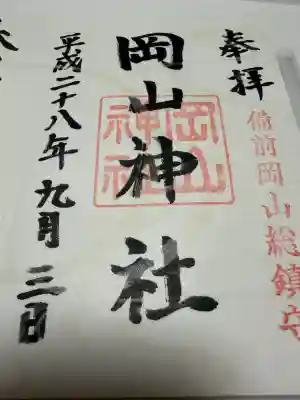 奉拝
備前岡山総鎮守
岡山神社
岡山神社
平成二十八年九月三日